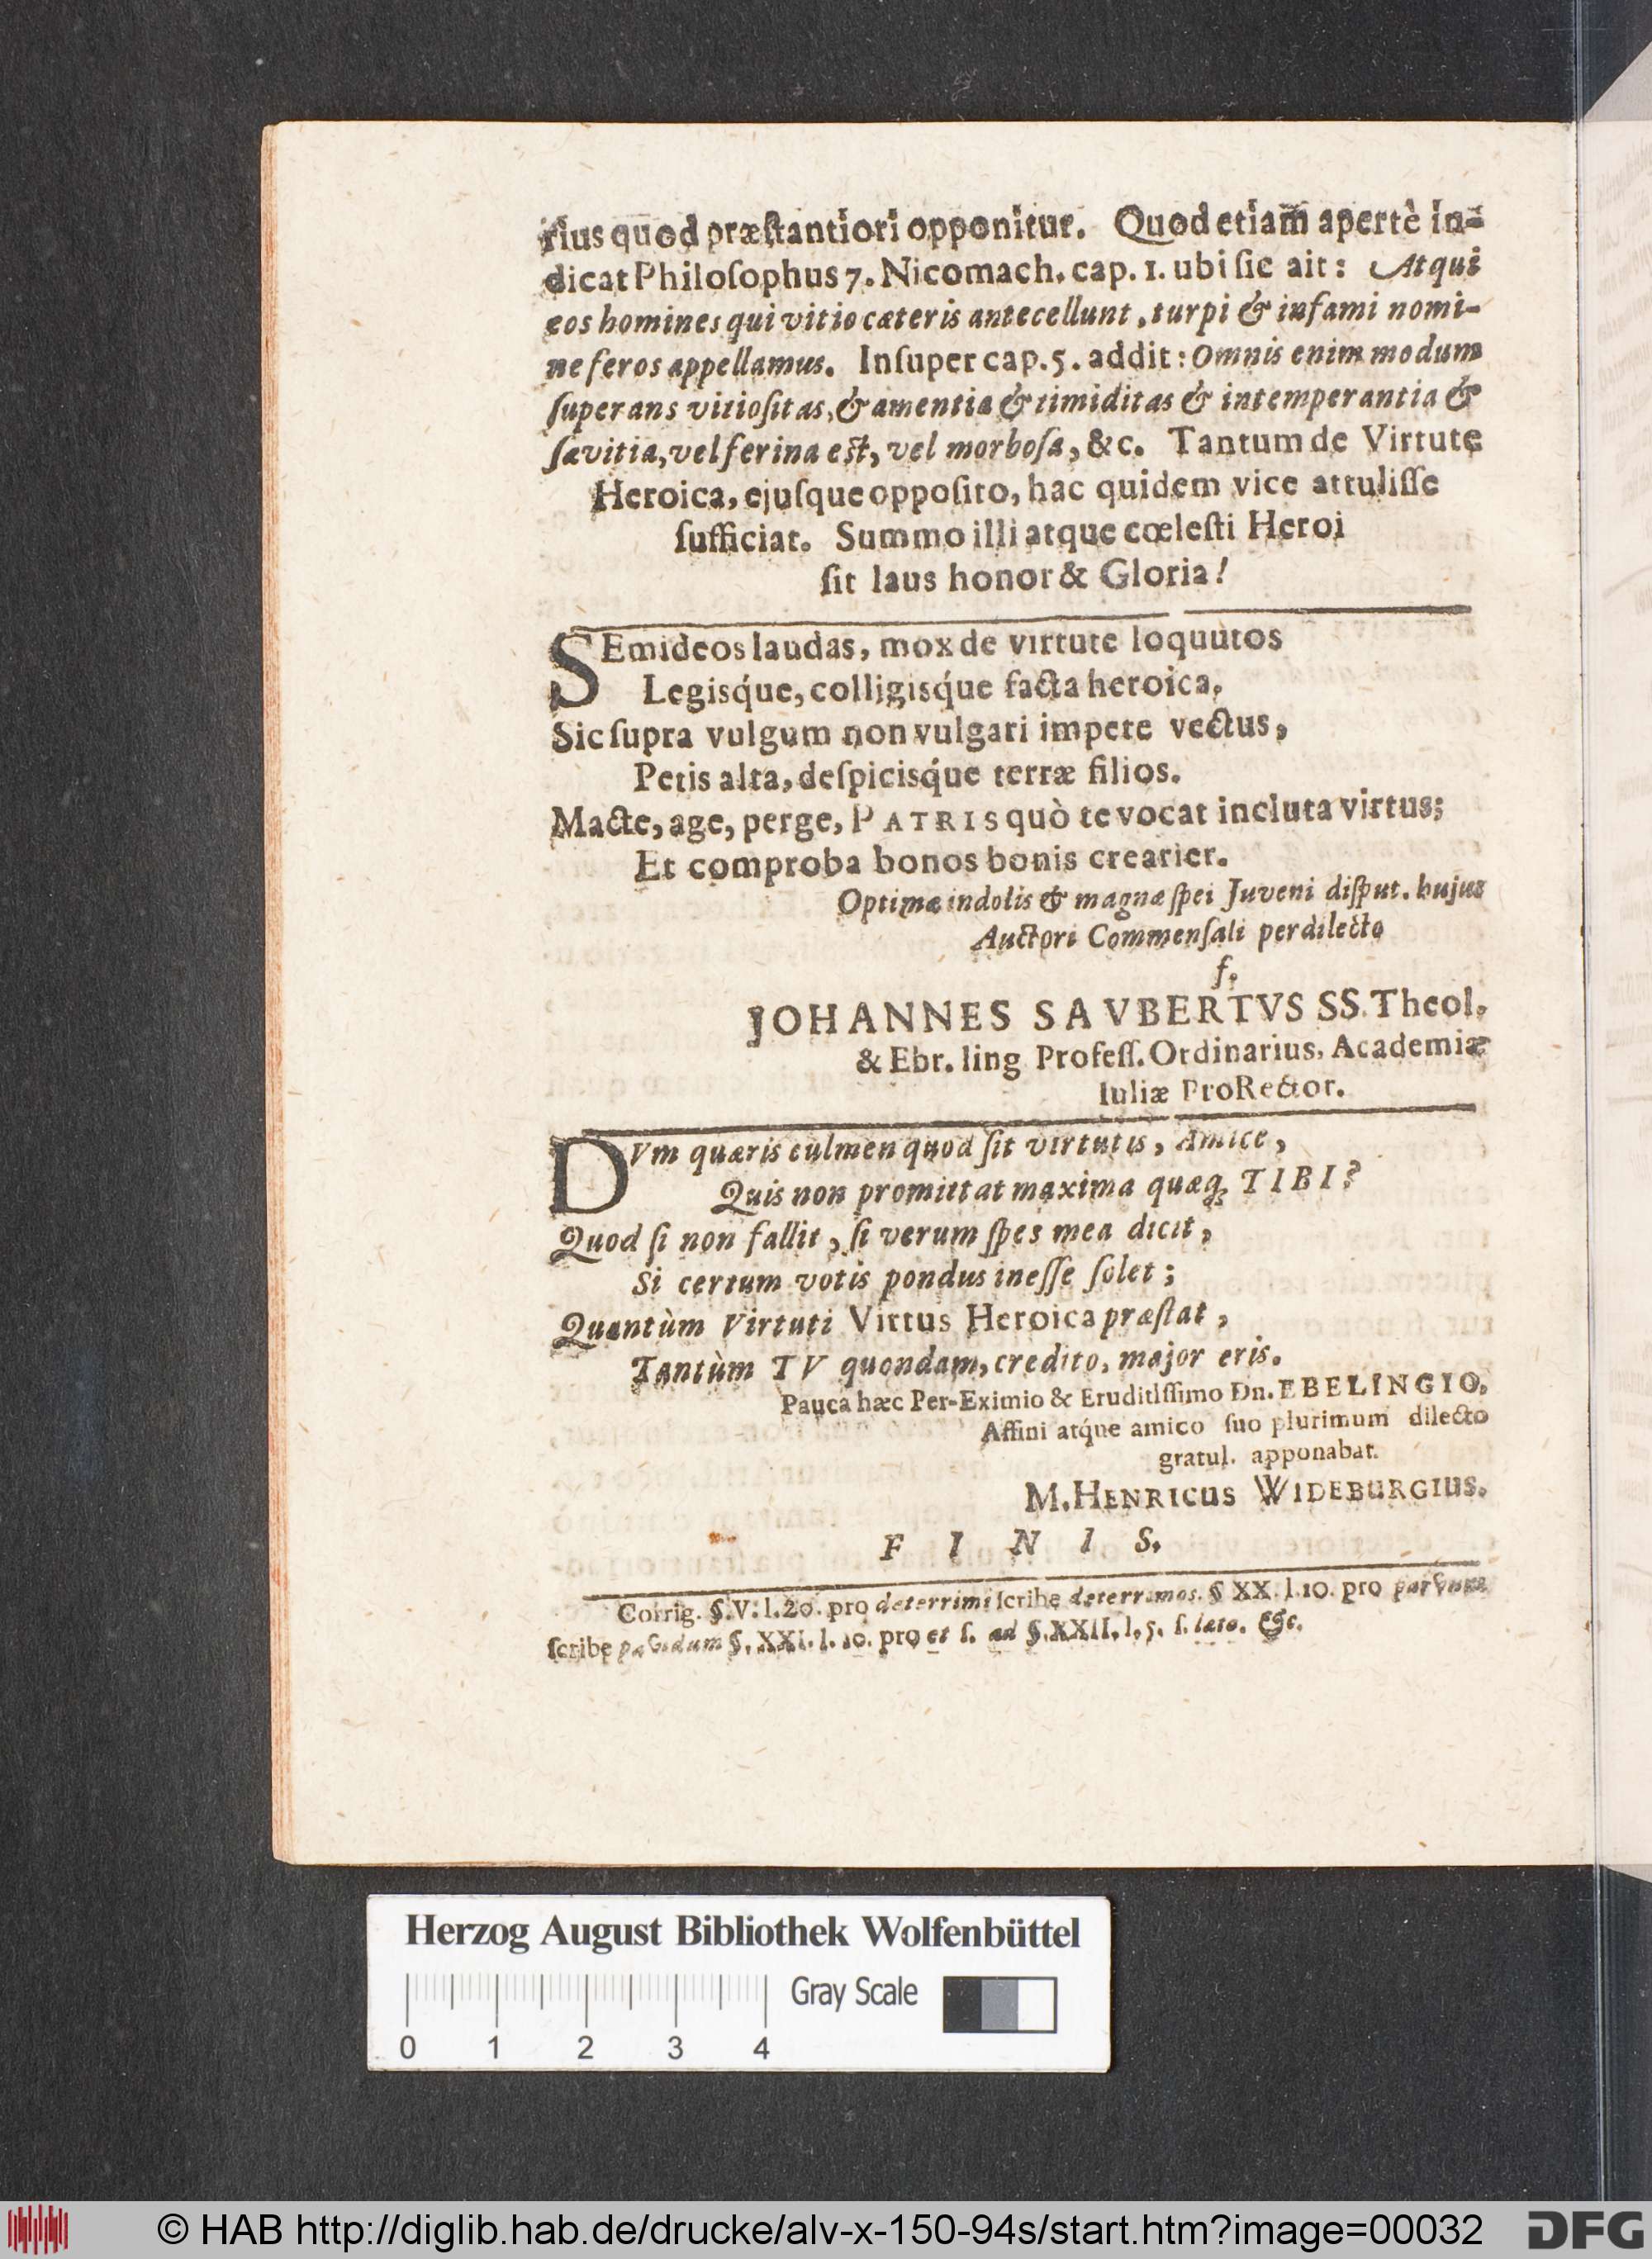 rius quod præſtantiori opponitur. Quod etiam apertè in-
dicat Philoſophus 7. Nicomach. cap. 1. ubi ſic ait: Atqui
eos homines qui vitio cæteris antecellunt, turpi & infami nomi-
ne feros appellamus. Inſuper cap. 5. addit: Omnis enim modum
ſuperans vitioſitas, & amentia & timiditas & intemperantia &
ſævitia, vel ferina eſt, vel morboſa, &c. Tantum de Virtute
Heroica, ejuſque oppoſito, hac quidem vice attuliſſe
ſufficiat. Summo illi atque cœleſti Heroi
ſit laus honor & Gloria!
SEmideos laudas, mox de virtute loquutos
Legisq́ue, colligisq́ue facta heroica,
Sic ſupra vulgum non vulgari impete vectus,
Petis alta, deſpicisq́ue terræ filios.
Macte, age, perge, PATRIS quò te vocat incluta virtus;
Et comproba bonos bonis crearier.
Optimæ indolis & magnæ ſpei Juveni diſput. hujus
Auctori Commenſali perdilecto
f.
JOHANNES SAVBERTVS SS. Theol.
& Ebr. ling Profeſſ. Ordinarius, Academiæ
Iuliæ ProRector.
DVm quæris culmen quod ſit virtutis, Amice,
Quis non promittat maxima quæq; TIBI?
Quod ſi non fallit, ſi verum ſpes mea dicit,
Si certum votis pondus ineſſe ſolet;
Quantùm Virtuti Virtus Heroica præſtat,
Tantùm TV quondam, credito, major eris.
Pauca hæc Per-Eximio & Eruditiſſimo Dn. EBELINGIO,
Affini atq́ue amico ſuo plurimum dilecto
gratul. apponabat.
M. HENRICUS WIDEBURGIUS.
F I N I S.
Corrig. §. V. l. 20. pro deterrimi ſcribe deterrimos. § XX. l. 10. pro
ſcribe §. XXI. l. 10. pro et ſ. ad §. XXII. l. 5. ſ. lato. &c.
Herzog August Bibliothek Wolfenbüttel
Gray Scale
0 1 2 3 4
© HAB http://diglib.hab.de/drucke/alv-x-150-94s/start.htm?image=00032 DFG